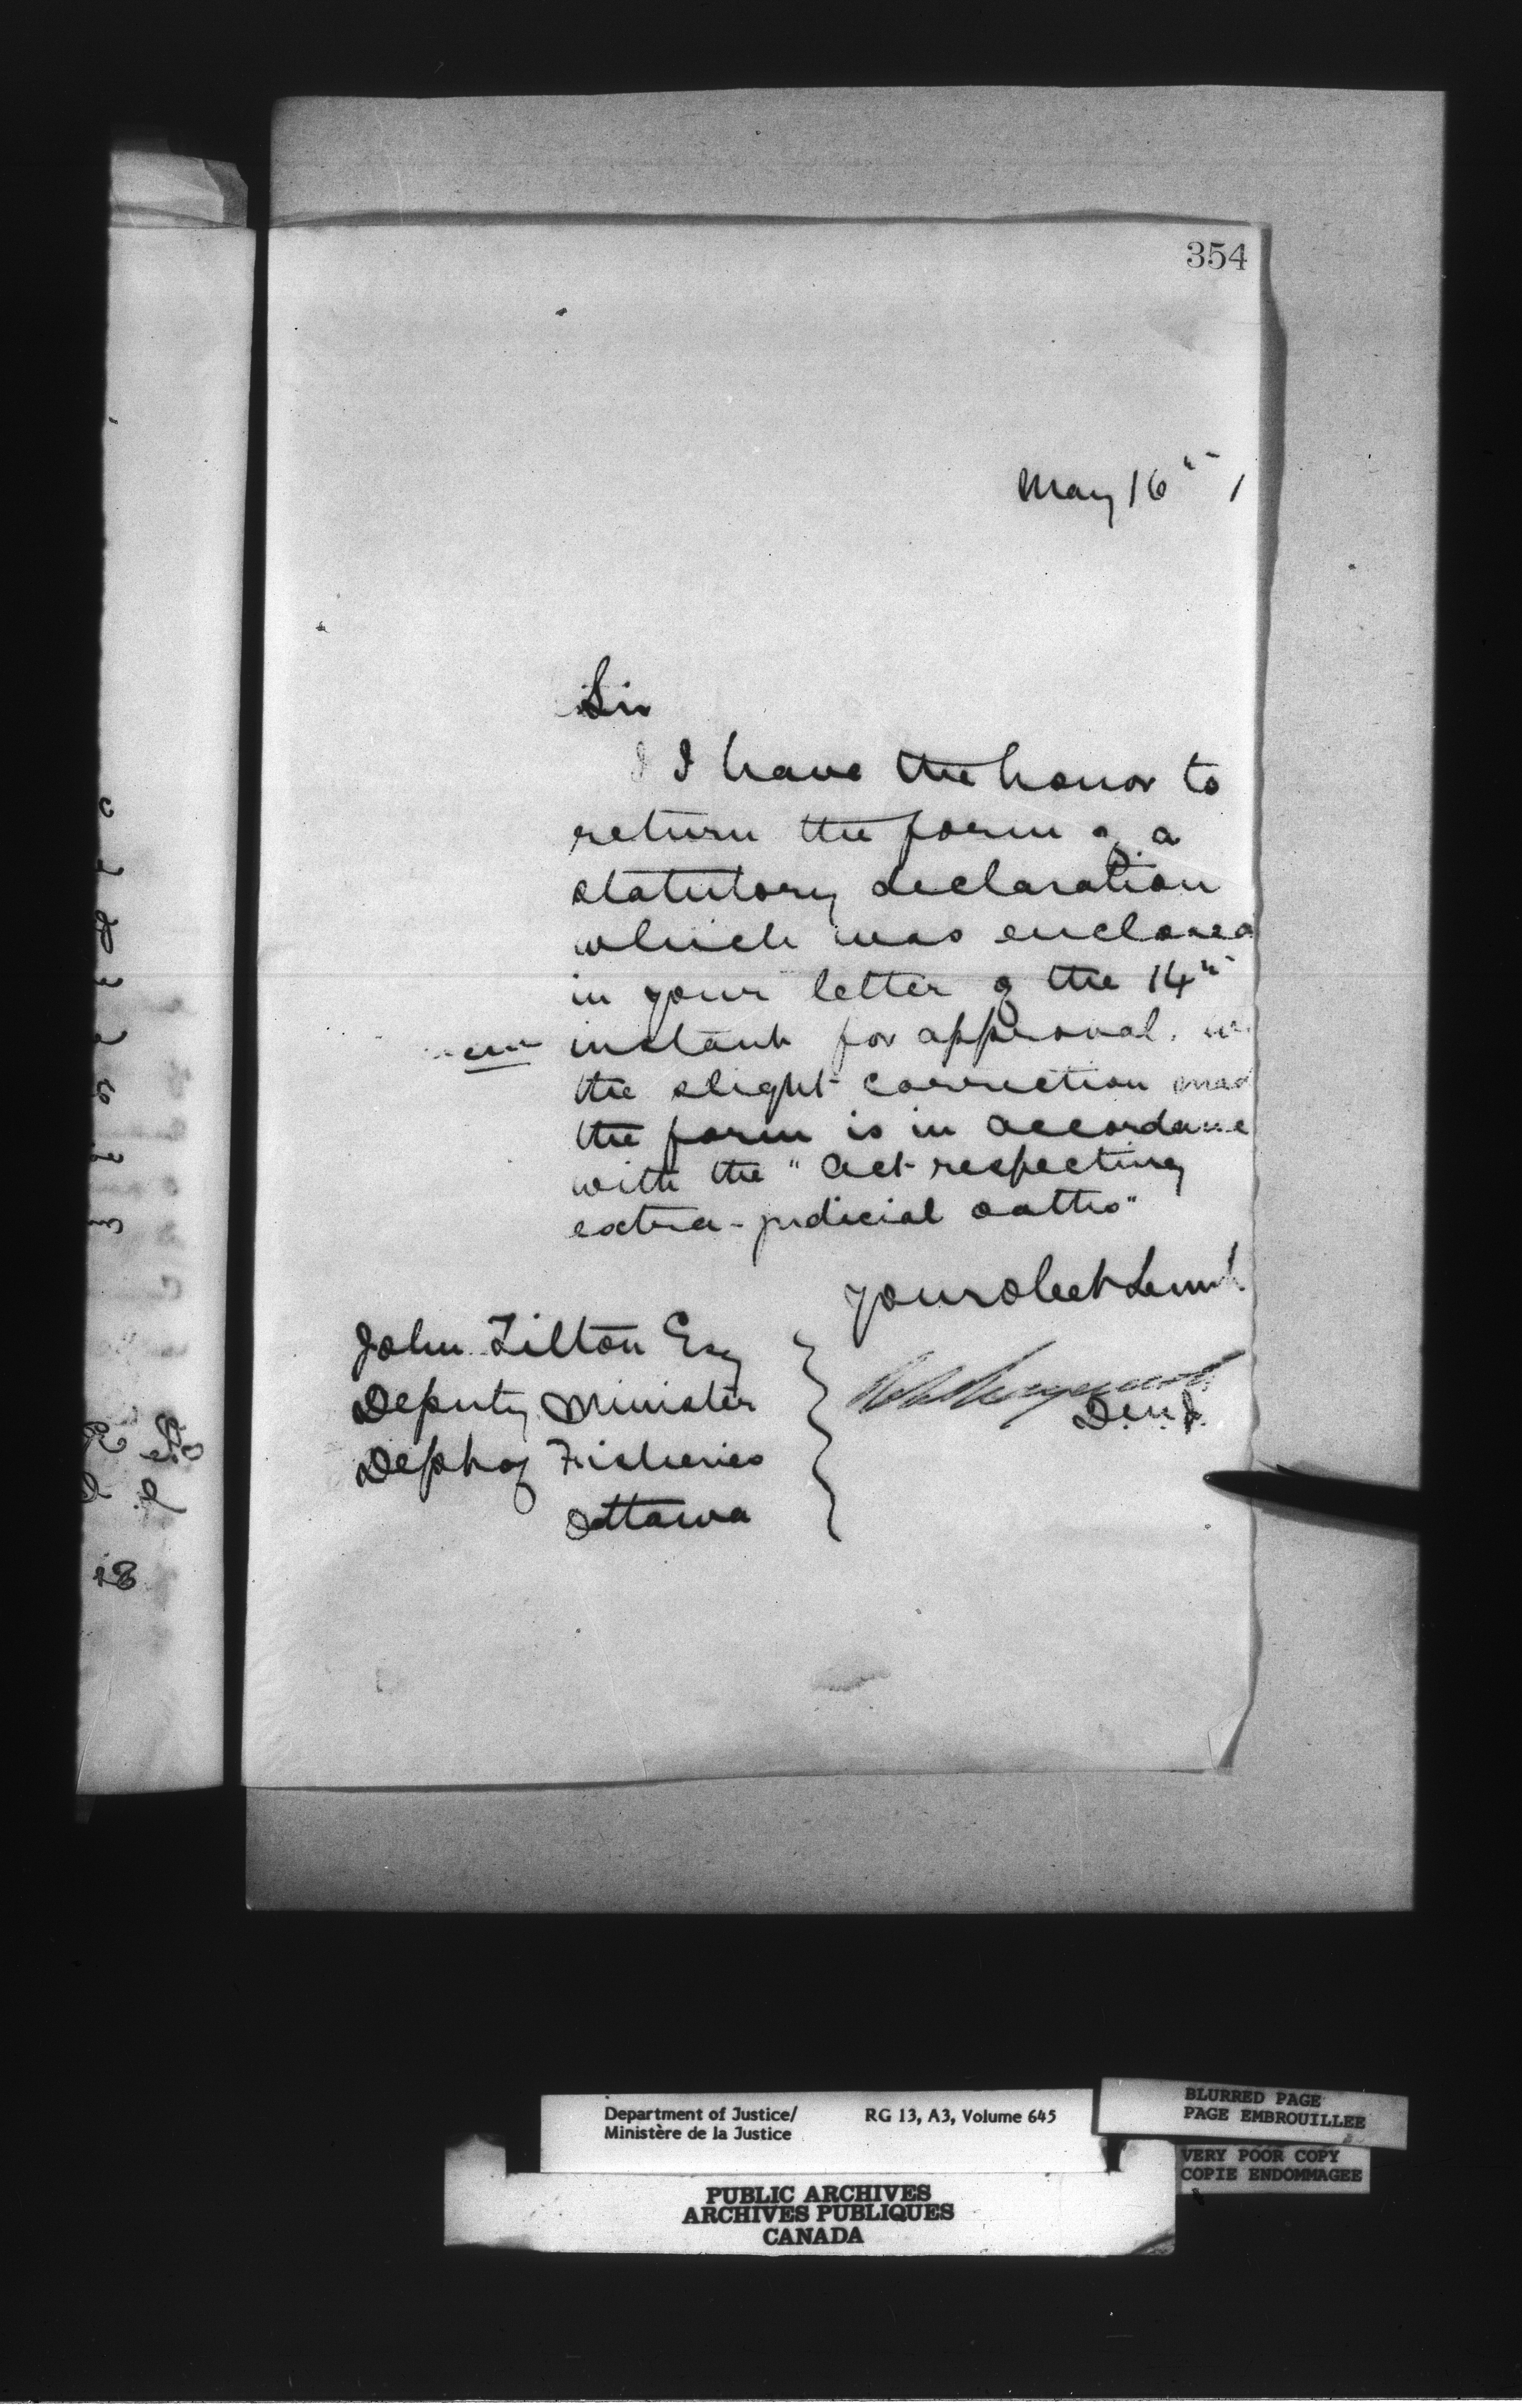 354
May 16th /
Sir
I I have the honor to
return the form of a
statutory declaration
which was enclosed
in your letter of the 14th
instant for approval. w
the slight correction mad
the form is in accordance
with the "Act respecting
extra-judicial oaths"
Your obedt Servt
John Tilton Esq
Deputy Minister
Dept of Fisheries
Ottawa
D.M.J.
Department of Justice/
Ministère de la Justice
RG 13, A3, Volume 645
BLURRED PAGE
PAGE EMBROUILLEE
VERY POOR COPY
COPIE ENDOMMAGEE
PUBLIC ARCHIVES
ARCHIVES PUBLIQUES
CANADA